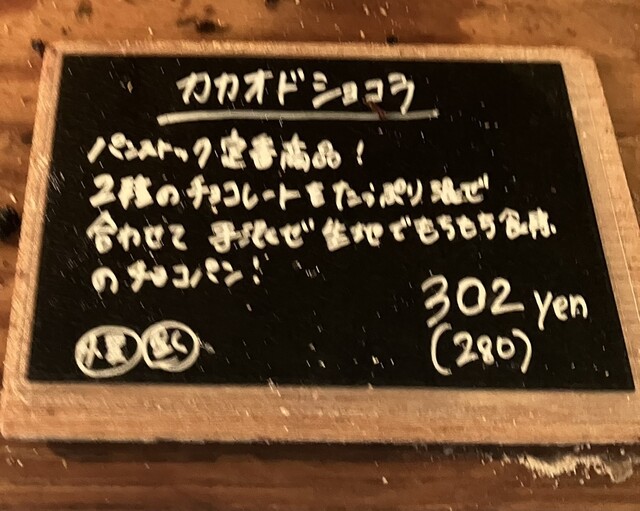 カカオドショコラ
パンストック定番商品!
2種のチョコレートをたっぷり混ぜ
合わせて 手混ぜ生地でもちもち食感
のチョコパン!
302 yen
(280)
小麦